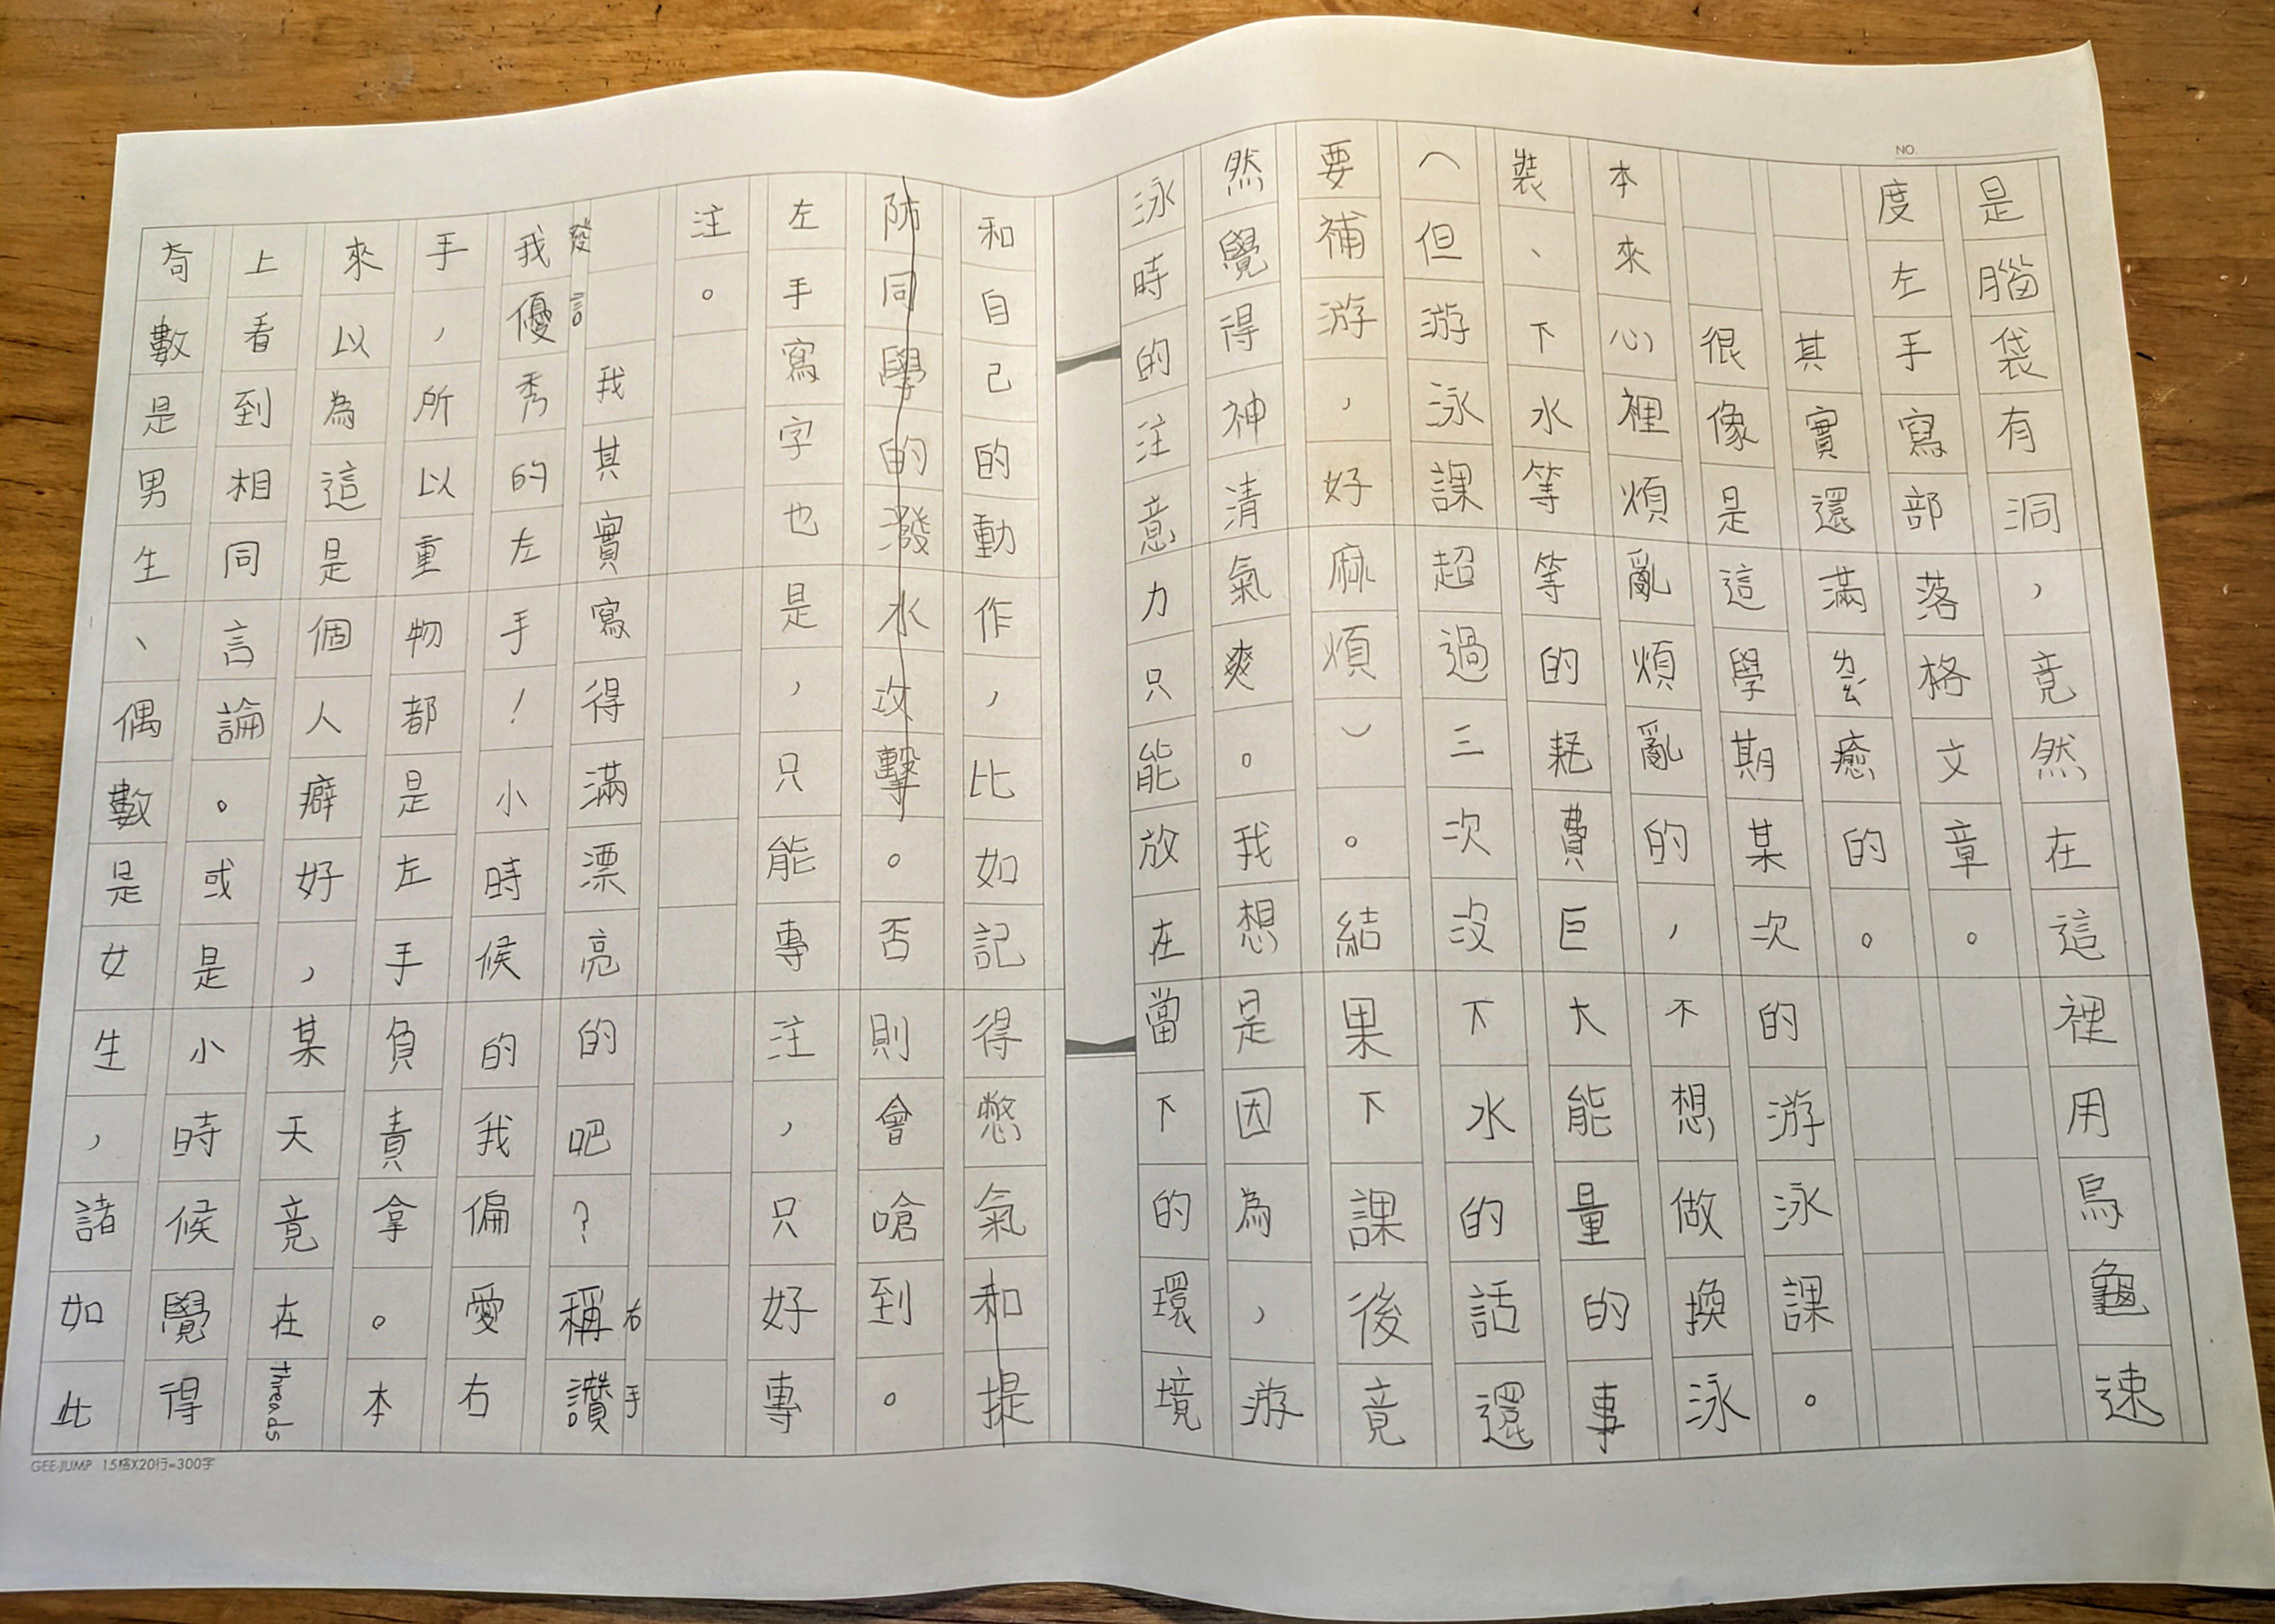 NO.
是腦袋有洞，竟然在這裡用烏龜速
度左手寫部落格文章。
其實還滿ㄌㄧㄠˊ癒的。
很像是這學期某次的游泳課。
本來心裡煩亂煩亂的，不想做換泳
裝、下水等等的耗費巨大能量的事
（但游泳課超過三次沒下水的話還
要補游，好麻煩）。結果下課後竟
然覺得神清氣爽。我想是因為，游
泳時的注意力只能放在當下的環境
和自己的動作，比如記得憋氣和提
防同學的潑水攻擊。否則會嗆到。
左手寫字也是，只能專注，只好專
注。
右手
發言
我其實寫得滿漂亮的吧？稱讚
我優秀的左手！小時候的我偏愛右
手，所以重物都是左手負責拿。本
來以為這是個人癖好，某天竟在threads
上看到相同言論。或是小時候覺得
奇數是男生、偶數是女生，諸如此
GEE-JUMP 15格X20行=300字